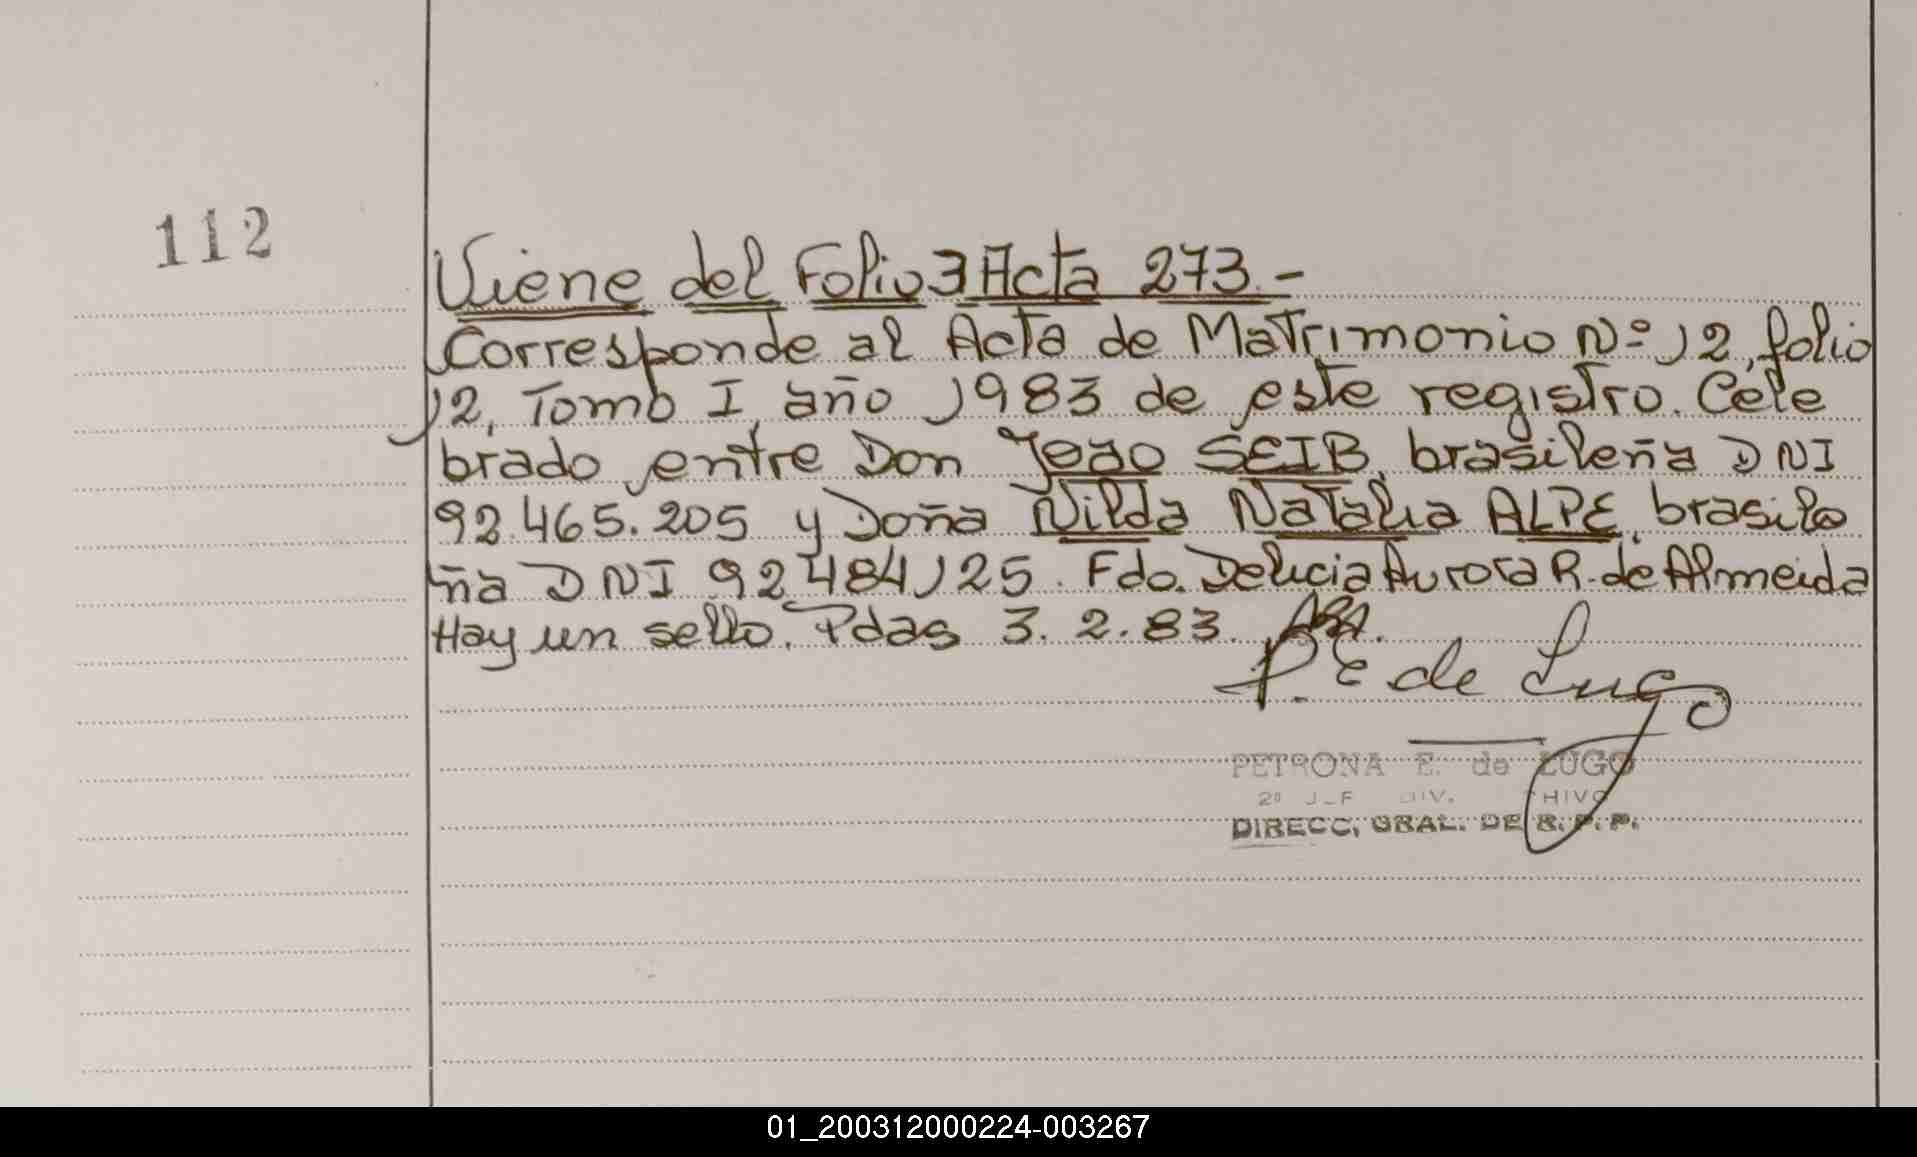 112
Viene del Folio 3 Acta 273.-
Corresponde al Acta de Matrimonio Nº 12, folio
12, Tomo I año 1983 de este registro. Cele
brado entre Don Joao SEIB, brasileña DNI
92.465.205 y Doña Nilda Natalia ALPE, brasile
ña DNI 92484125. Fdo. Delicia Aurora R. de Almeida
Hay un sello. Pdas 3.2.83.
P. E de Lugo
PETRONA E. de LUGO
2º J F DIV. CHIVO
DIRECC, GRAL. DE R. P. P.
01_200312000224-003267